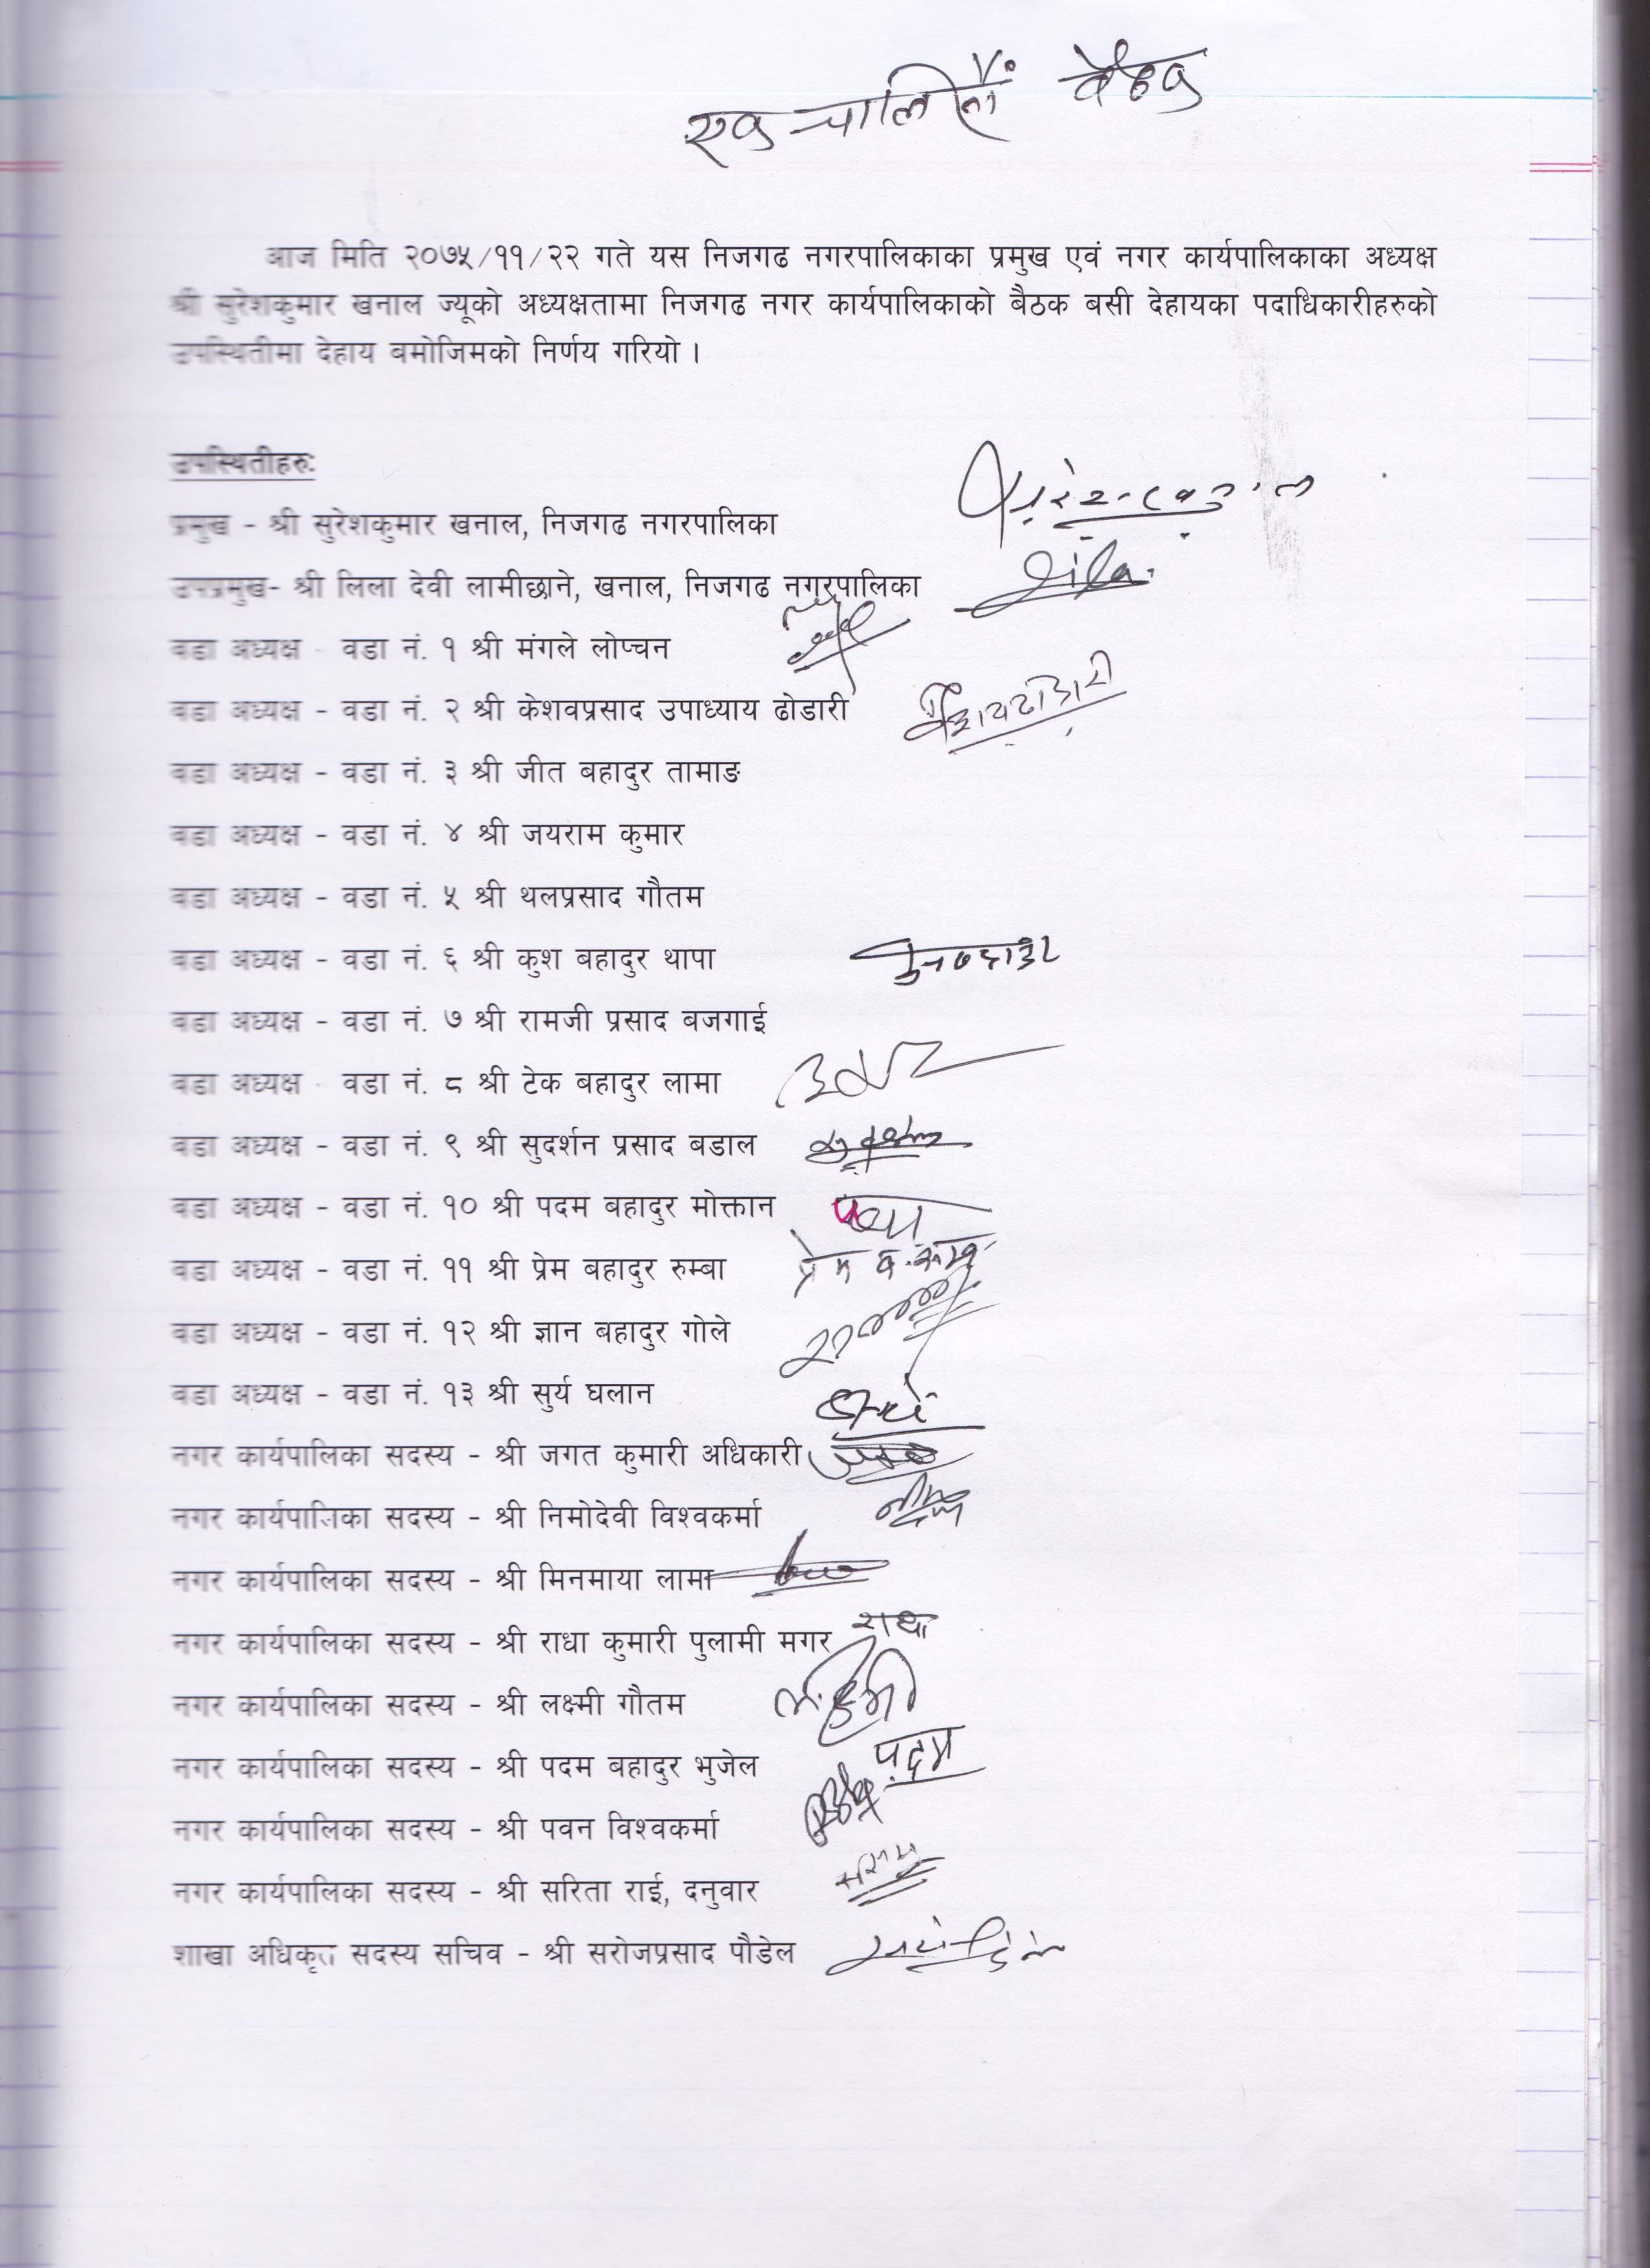 एकचालिसौं बैठक
आज मिति २०७५/११/२२ गते यस निजगढ नगरपालिकाका प्रमुख एवं नगर कार्यपालिकाका अध्यक्ष
श्री सुरेशकुमार खनाल ज्यूको अध्यक्षतामा निजगढ नगर कार्यपालिकाको बैठक बसी देहायका पदाधिकारीहरुको
उपस्थितीमा देहाय बमोजिमको निर्णय गरियो ।
उपस्थितीहरु:
प्रमुख - श्री सुरेशकुमार खनाल, निजगढ नगरपालिका
उपप्रमुख- श्री लिला देवी लामीछाने, खनाल, निजगढ नगरपालिका
वडा अध्यक्ष - वडा नं. १ श्री मंगले लोप्चन
वडा अध्यक्ष - वडा नं. २ श्री केशवप्रसाद उपाध्याय ढोडारी
वडा अध्यक्ष - वडा नं. ३ श्री जीत बहादुर तामाङ
वडा अध्यक्ष - वडा नं. ४ श्री जयराम कुमार
वडा अध्यक्ष - वडा नं. ५ श्री थलप्रसाद गौतम
वडा अध्यक्ष - वडा नं. ६ श्री कुश बहादुर थापा
वडा अध्यक्ष - वडा नं. ७ श्री रामजी प्रसाद बजगाई
वडा अध्यक्ष - वडा नं. ८ श्री टेक बहादुर लामा
वडा अध्यक्ष - वडा नं. ९ श्री सुदर्शन प्रसाद बडाल
वडा अध्यक्ष - वडा नं. १० श्री पदम बहादुर मोक्तान
वडा अध्यक्ष - वडा नं. ११ श्री प्रेम बहादुर रुम्बा
वडा अध्यक्ष - वडा नं. १२ श्री ज्ञान बहादुर गोले
वडा अध्यक्ष - वडा नं. १३ श्री सुर्य घलान
नगर कार्यपालिका सदस्य - श्री जगत कुमारी अधिकारी
नगर कार्यपालिका सदस्य - श्री निमोदेवी विश्वकर्मा
नगर कार्यपालिका सदस्य - श्री मिनमाया लामा
नगर कार्यपालिका सदस्य - श्री राधा कुमारी पुलामी मगर राधा
नगर कार्यपालिका सदस्य - श्री लक्ष्मी गौतम
नगर कार्यपालिका सदस्य - श्री पदम बहादुर भुजेल पदम
नगर कार्यपालिका सदस्य - श्री पवन विश्वकर्मा
नगर कार्यपालिका सदस्य - श्री सरिता राई, दनुवार
शाखा अधिकृत सदस्य सचिव - श्री सरोजप्रसाद पौडेल